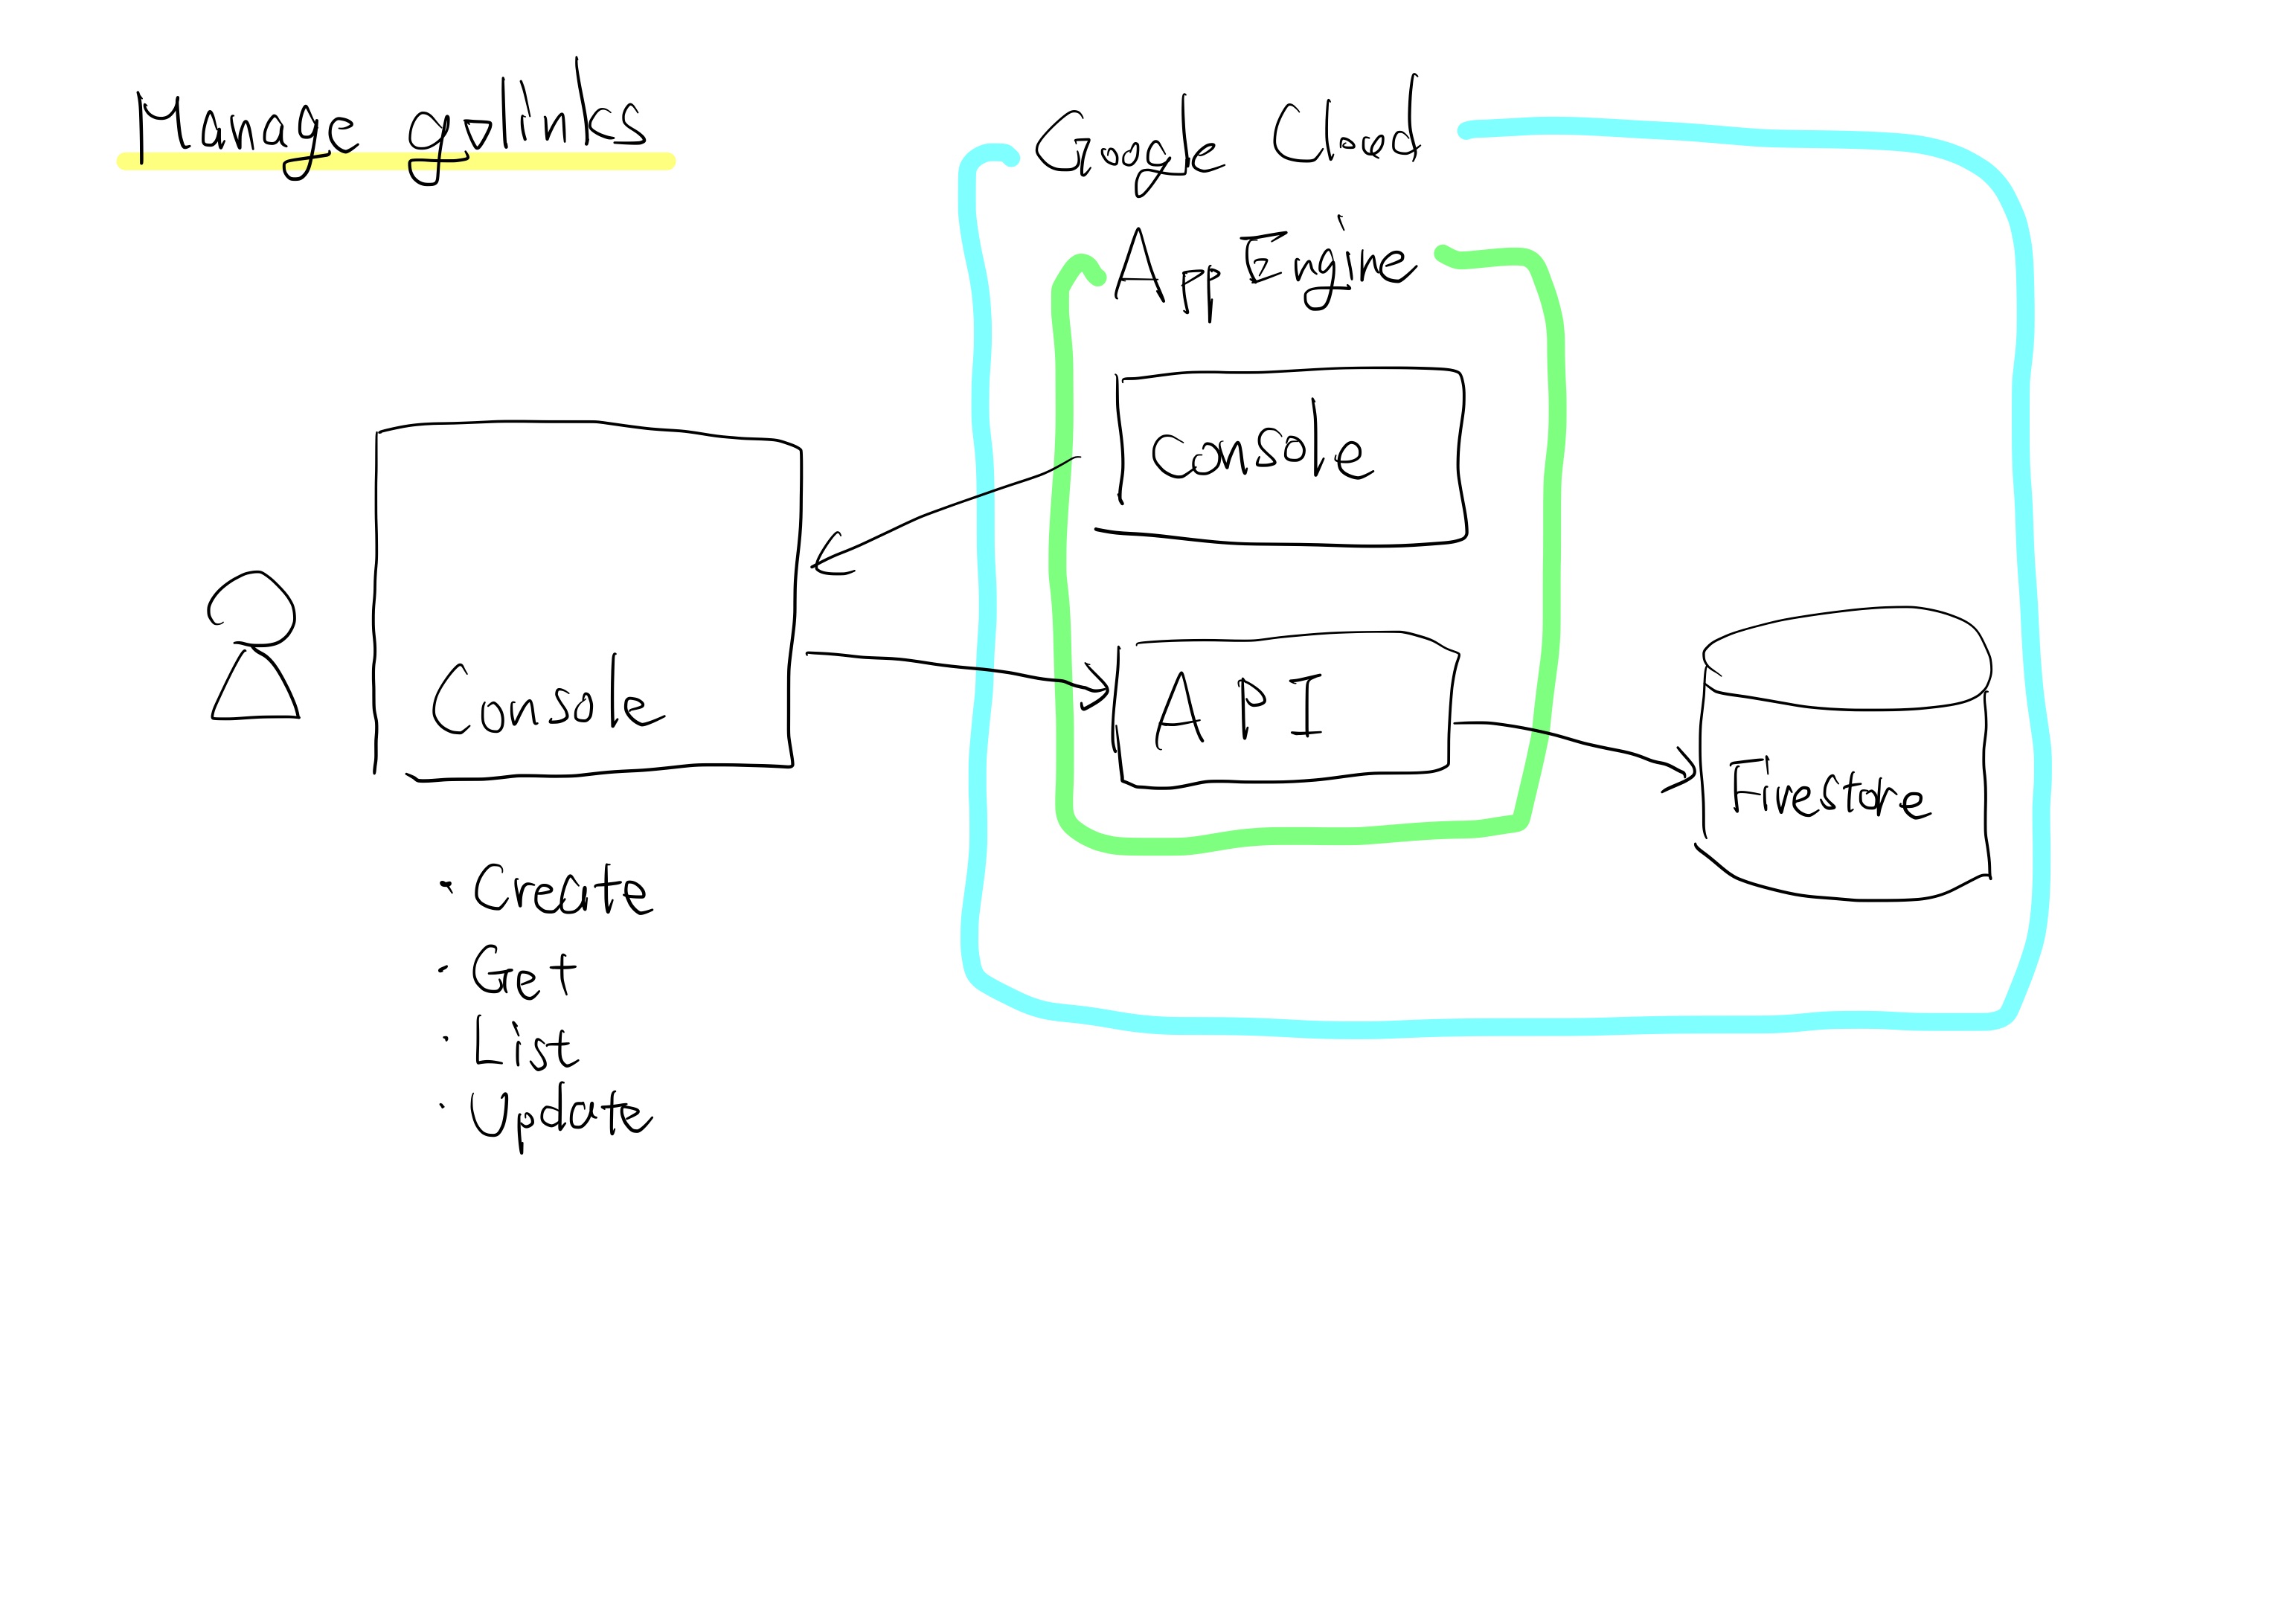 Manage golinks
Google Cloud
App Engine
Console
Console
API
Firestore
· Create
· Get
· List
· Update